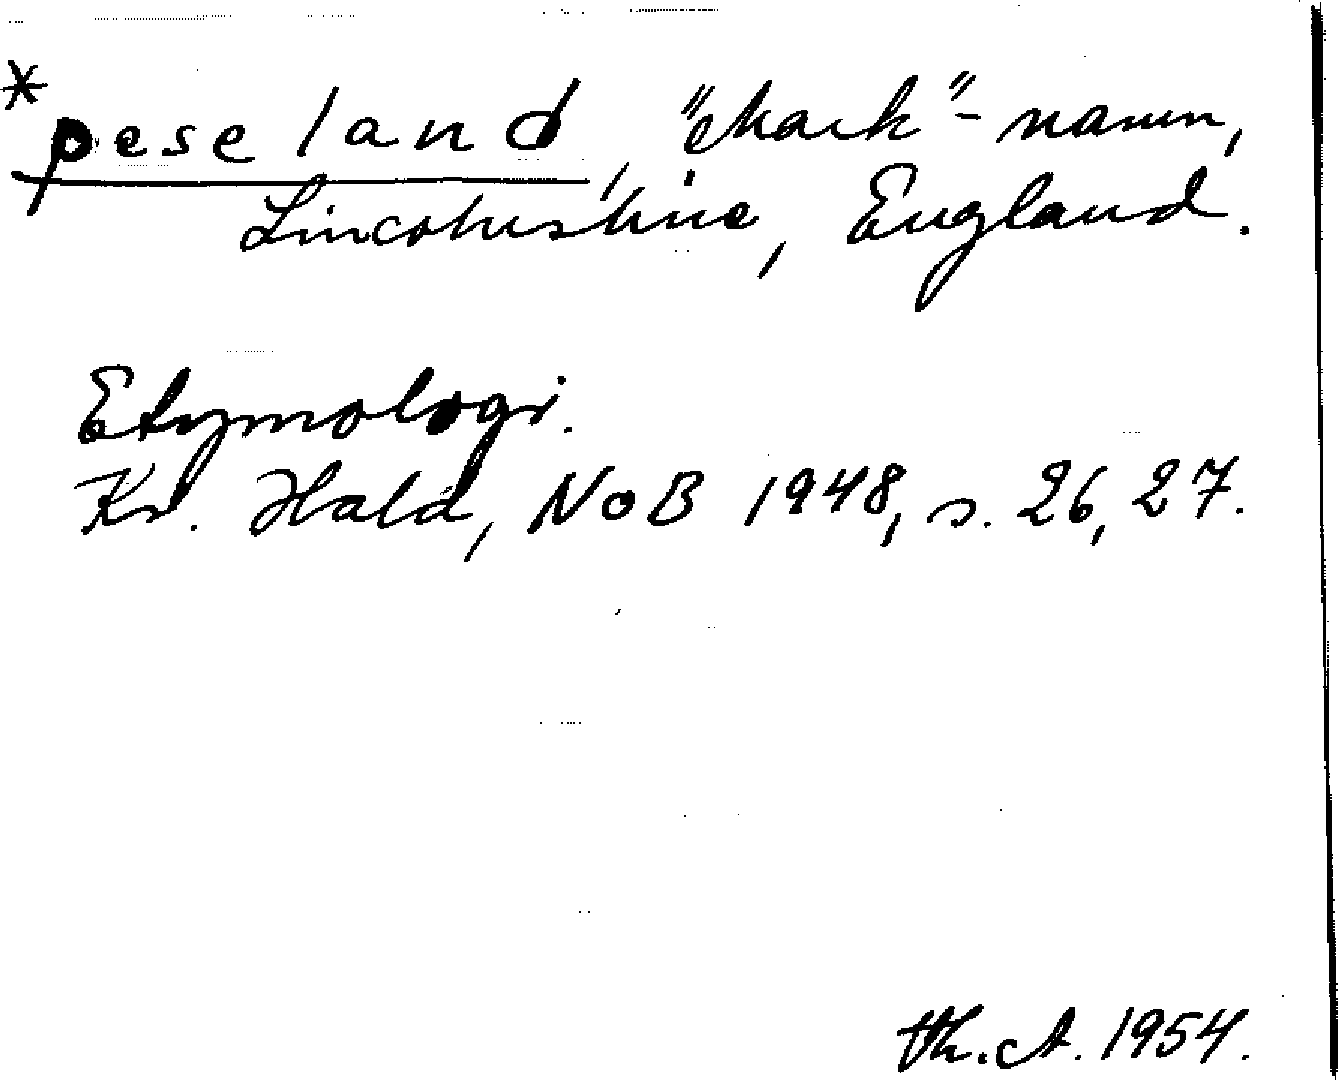 *peseland, "Mark"-namn,
Lincolnshire, England.
Etymologi.
Kr. Hald, NoB 1948, s. 26, 27.
Th. A. 1954.